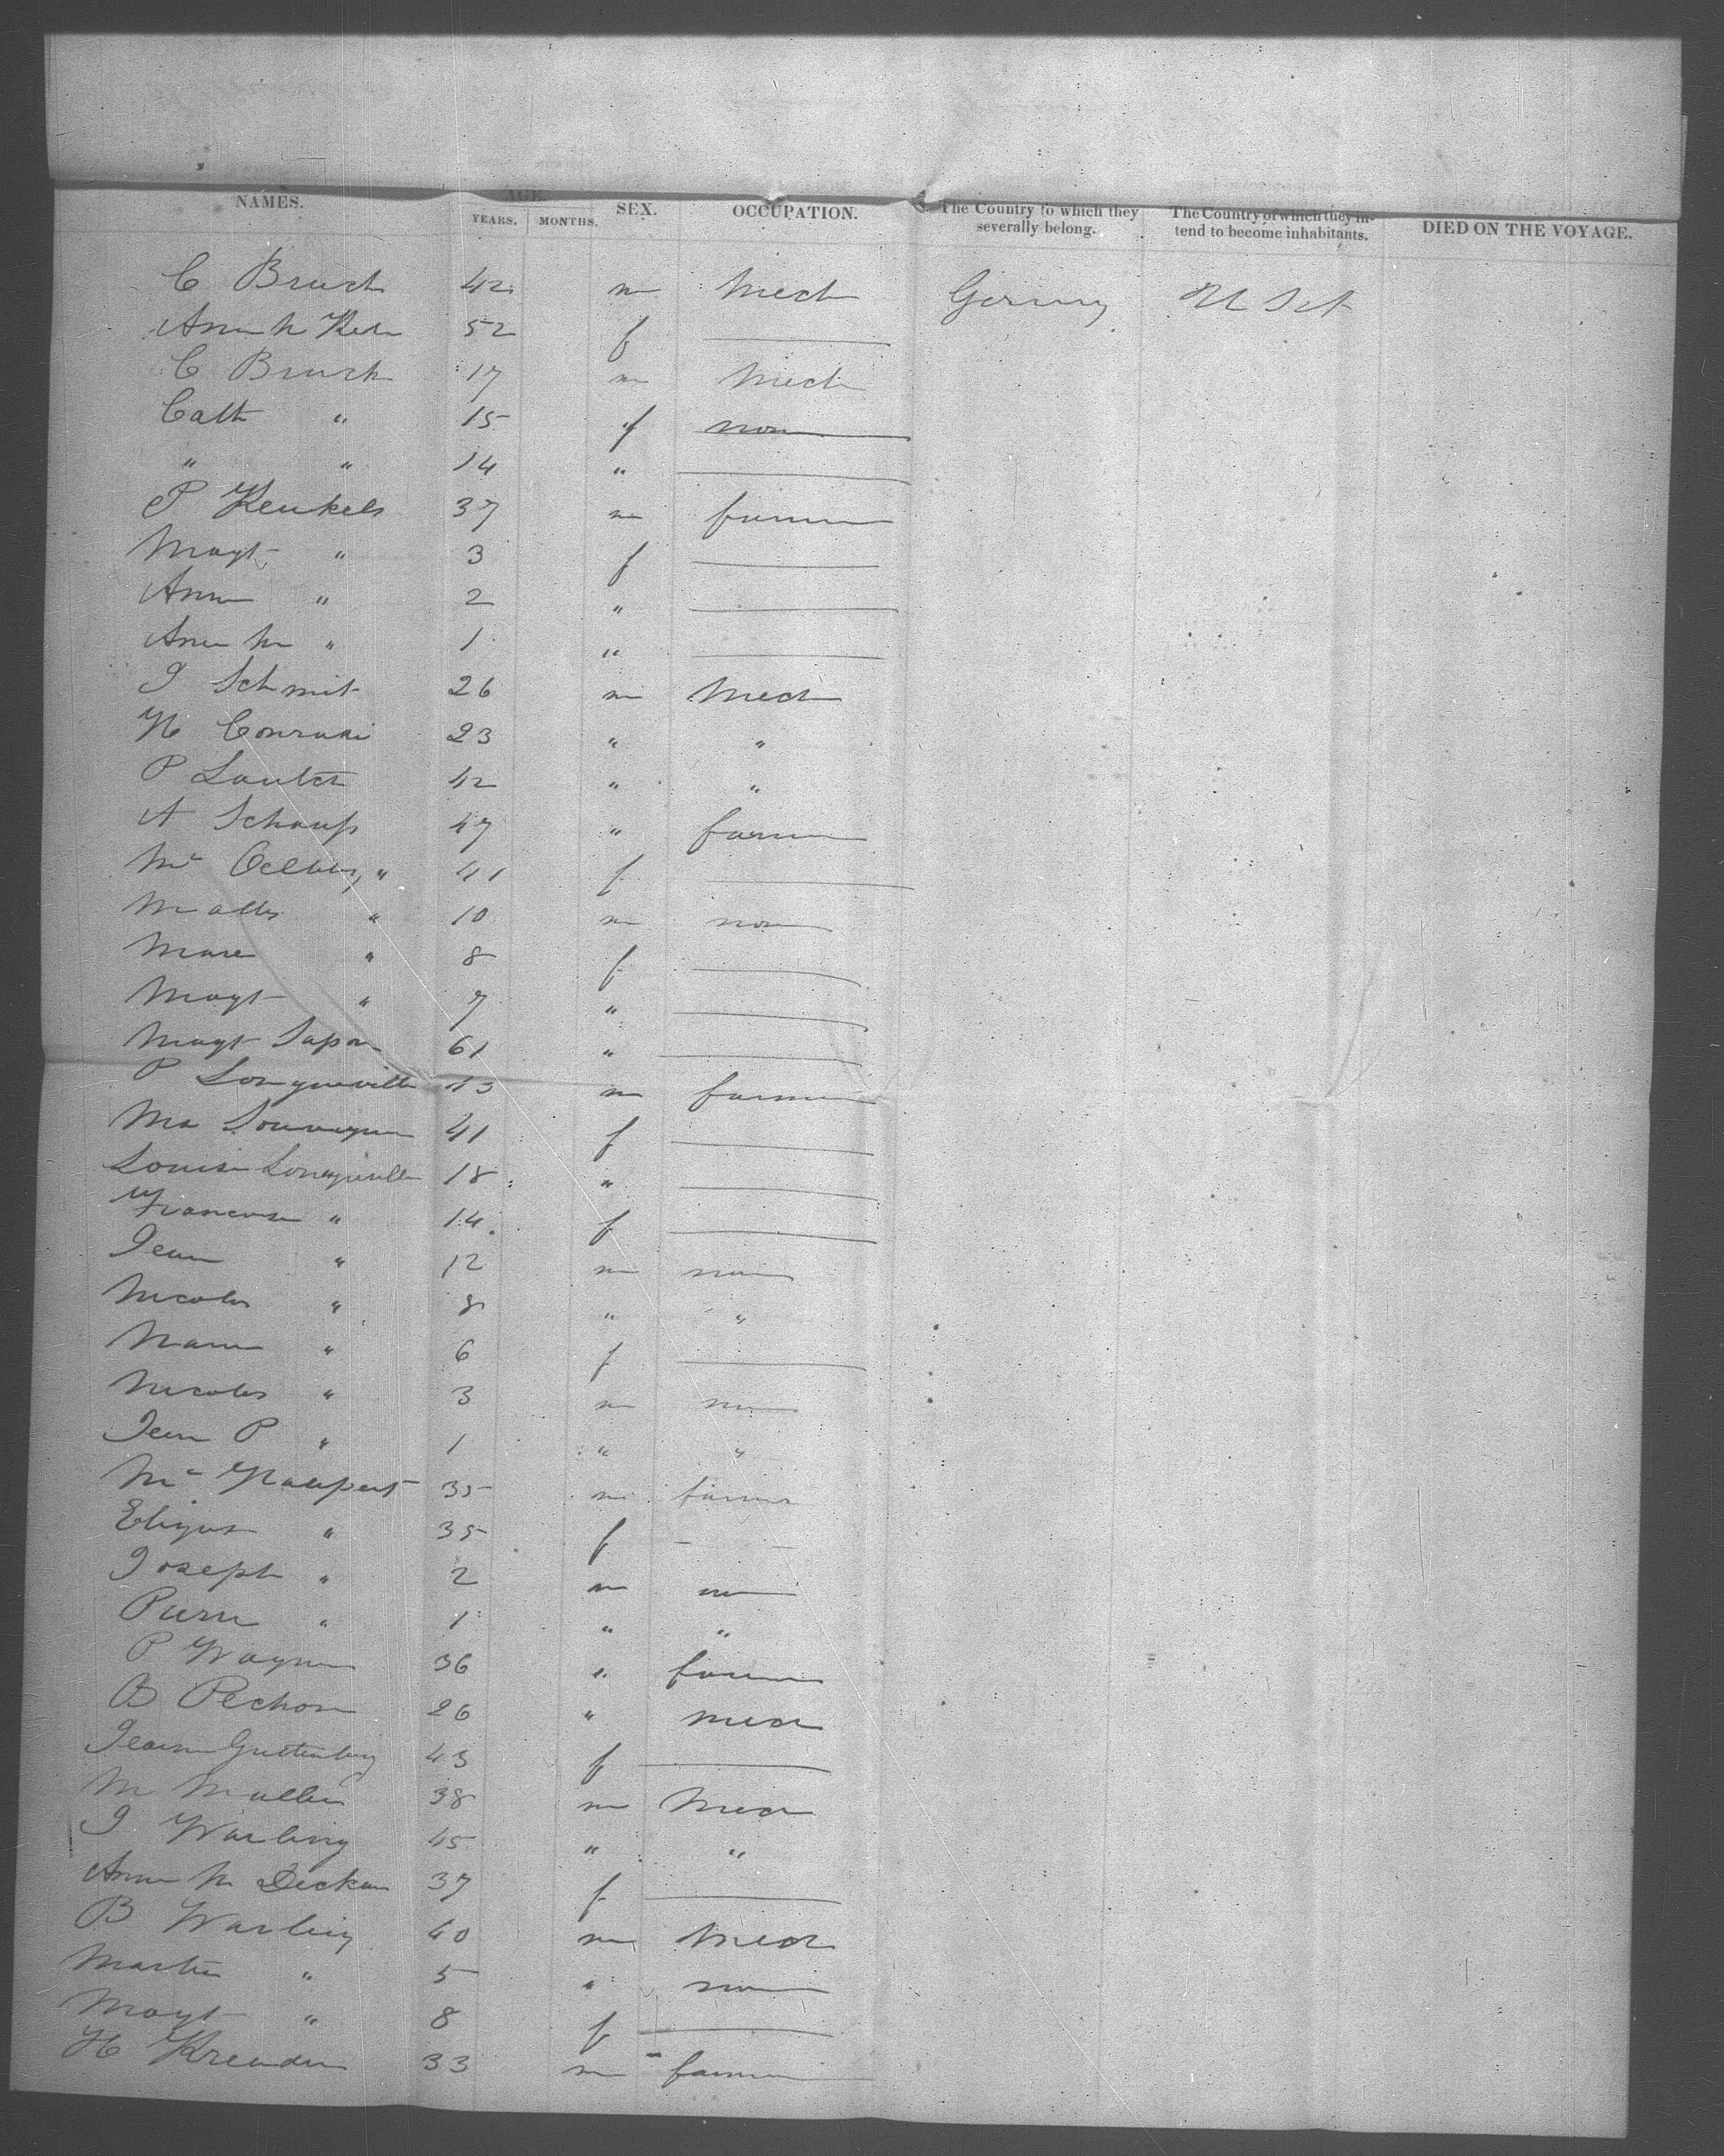 NAMES. AGE. YEARS. MONTHS. SEX. OCCUPATION. The Country to which they severally belong. The Country of which they intend to become inhabitants. DIED ON THE VOYAGE.
C Bruch 42 m Mech Germy U St
Ann M 52 f
C Bruch 17 m Mech
Cath " 15 f non
" " 14 "
P Keukels 37 m farmer
Magt " 3 f
Ann " 2 "
Ann M " 1 "
J Schmit 26 m Mech
N Conradi 23 " "
P Lautch 42 " "
A Schaufs 47 " farmer
Me " 41 f
Matts " 10 m non
Marie " 8 f
Magt " 7 "
Magt 61 "
P Longueville 43 m farmer
Ma 41 f
Louise Longueville 18 "
Francoise " 14 f
Jean " 12 m non
Nicolas " 8 " "
Marie " 6 f
Nicolas " 3 m non
Jean P " 1 " "
35 m farmer
" 35 f
Joseph " 2 m non
Pierre " 1 " "
P Wagner 36 " farmer
B Pechon 26 " mech
Guttenberg 43 f
M Muller 38 m Mech
J Warling 45 " "
Ann M Decker 37 f
B Warling 40 m Mech
Martin " 5 " non
Magt " 8 f
H 33 m farmer